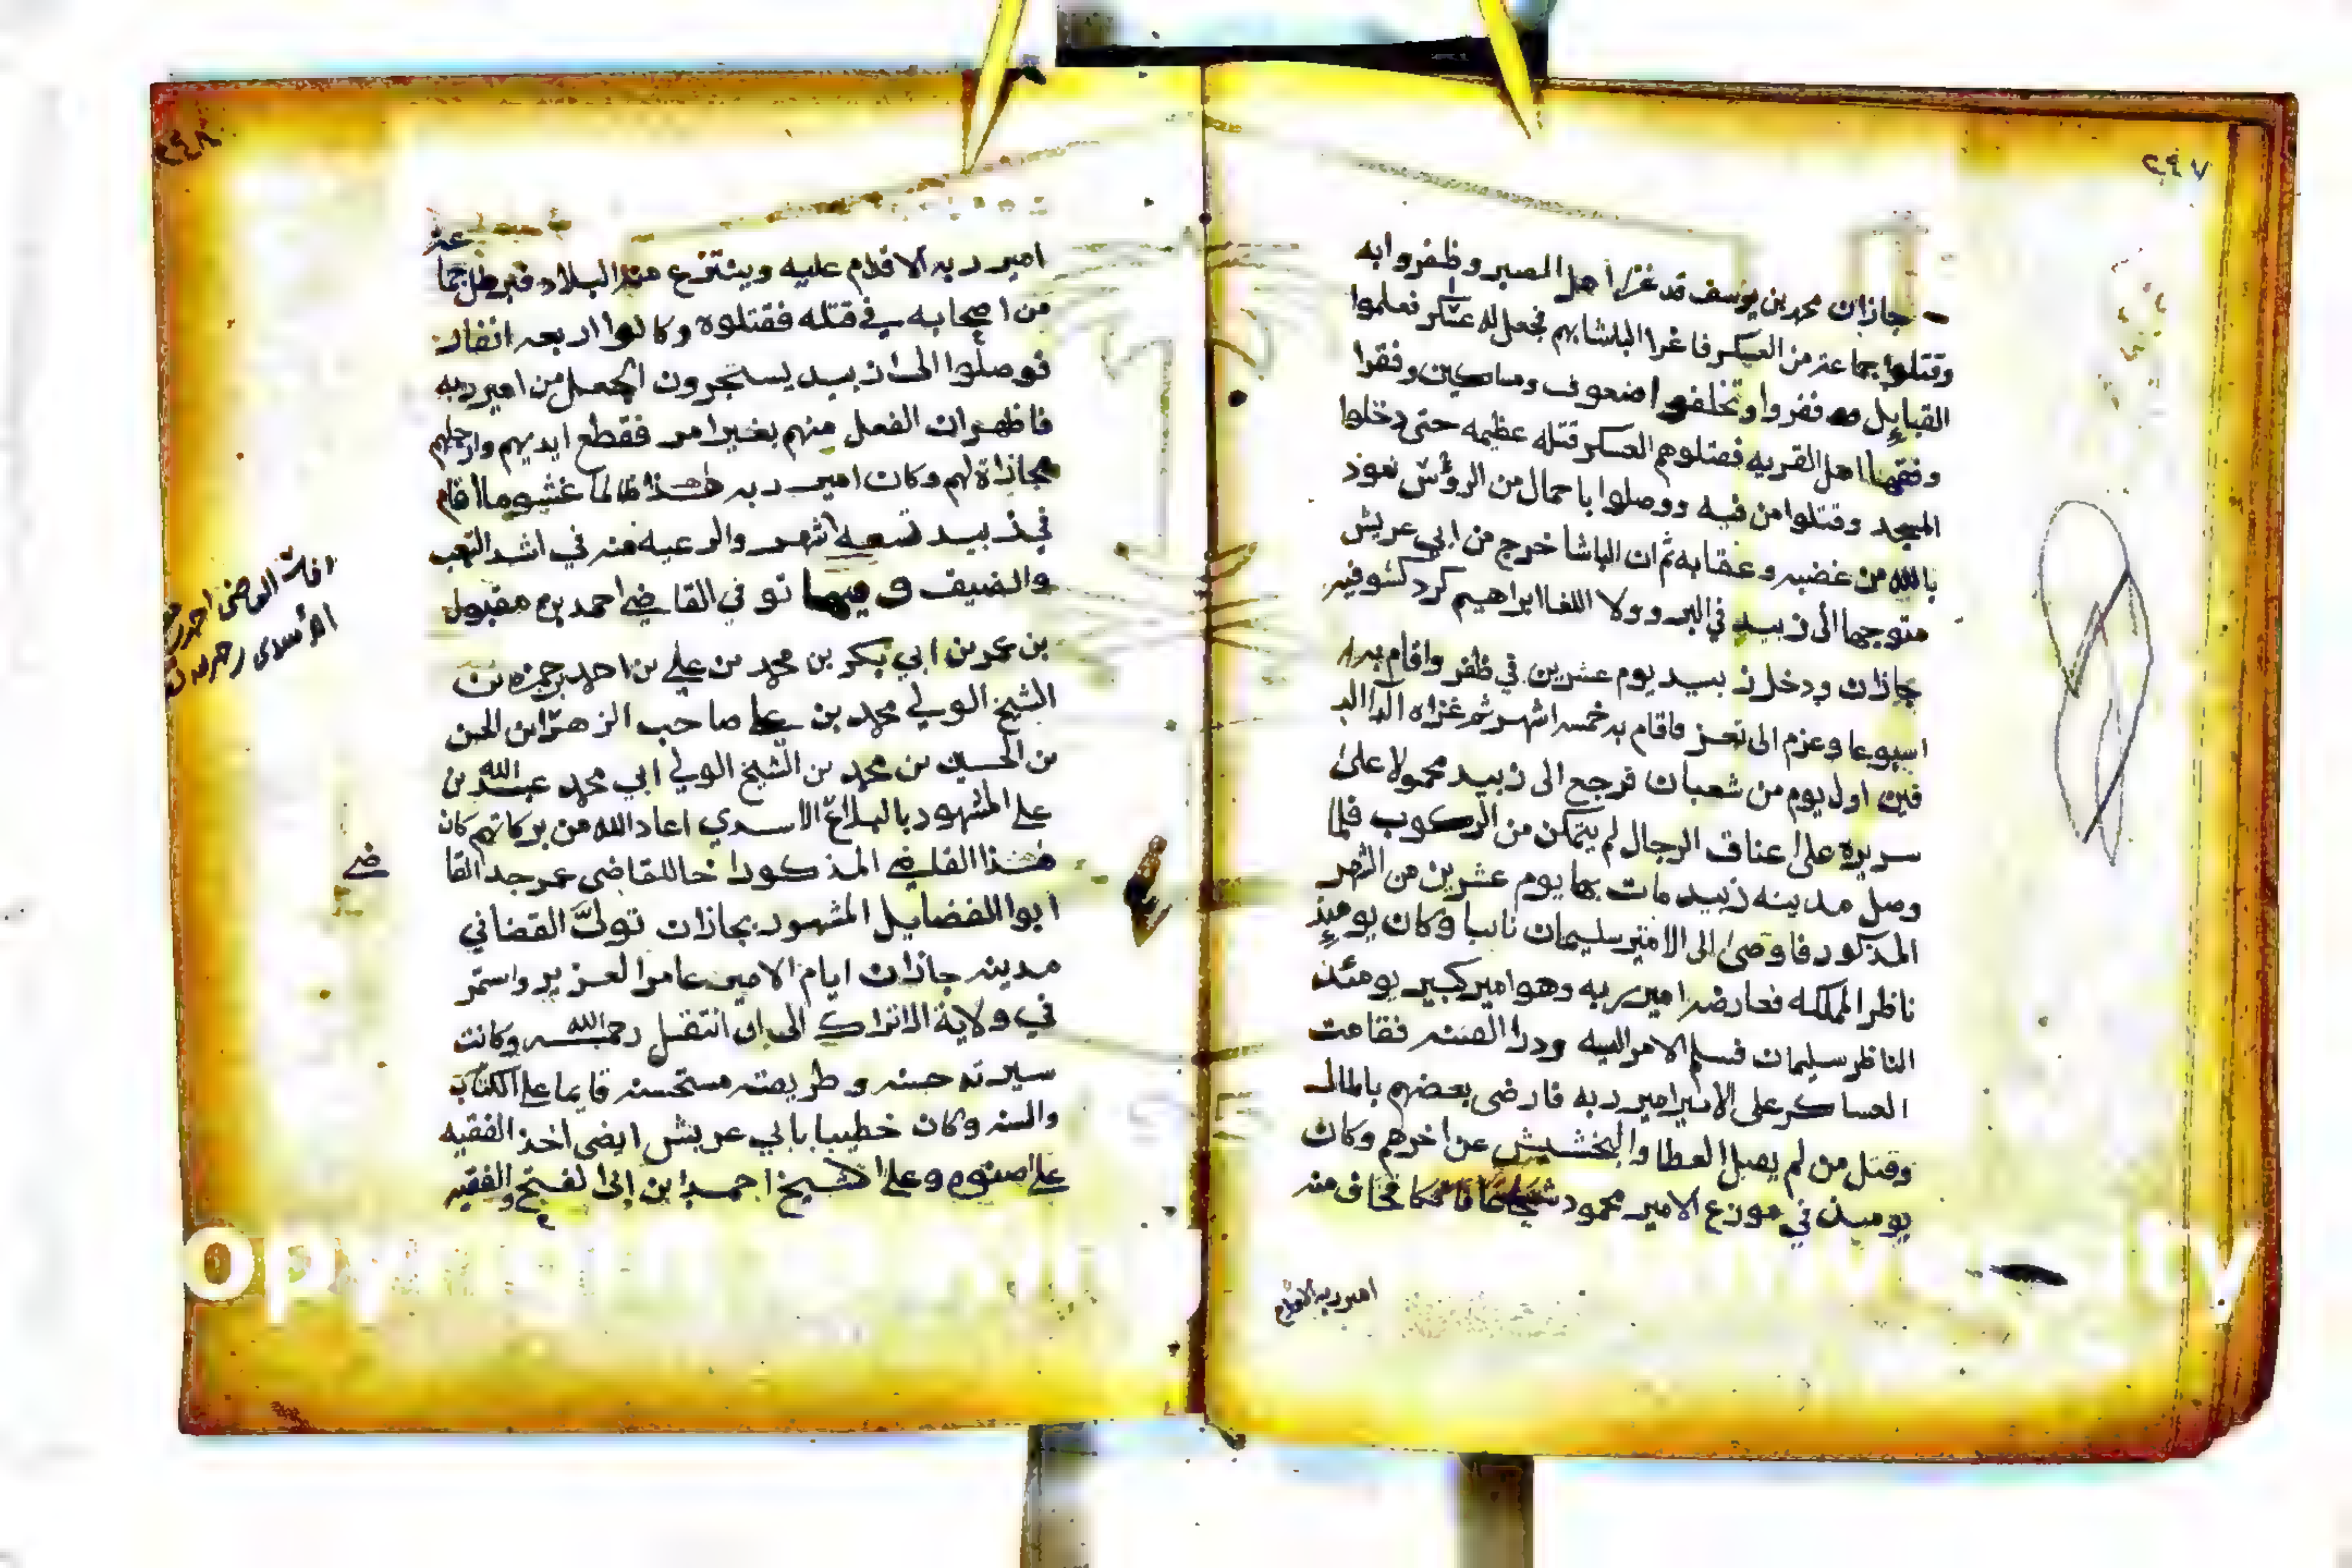 ٢٤٧
جازان محمد بن يوسف قد غزا اهل الصبر وظفروا به
وقتلوا جماعة من العسكر فاغرا الباشا بهم فجعل له عسكر فعلموا
القبايل ففروا وتخلفوا ضعوف ومساكين وفقرا
وفقها اهل القريه فقتلوهم العسكر قتله عظيمه حتى دخلوا
المسجد وقتلوا من فيه ووصلوا باحمال من الرؤس نعوذ
بالله من غضبه وعقابه ثم ان الباشا خرج من ابي عريش
متوجها الى زبيد في البر وولا اللغا ابراهيم كرد كشوفيه
جازان ودخل زبيد يوم عشرين في ظفر واقام به
اسبوعا وعزم الى تعز فاقام به خمسه اشهر ثم غزاه
اول يوم من شعبان فرجع الى زبيد محمولا على
سريره على اعناق الرجال لم يتمكن من الركوب فلما
وصل مدينه زبيد مات بها يوم عشرين من الشهر
المذكور فاوصى الى الامير سليمان نايبا وكان يوميذ
ناظر المملكه فعارضه امير ربه وهو امير كبير يومئذ
الناظر سليمان فسلم الامر اليه ودرا الفتنه فقامت
العساكر على الامير امير ربه فارضى بعضهم بالمال
وقتل من لم يقبل العطا والبخشيش عن اخرهم وكان
يوميذ في موزع الامير محمود شجاعا فاتكا فخاف منه
امير ربه الاقدام
٢٤٨
امير ربه الاقدام عليه وينتزع منه البلاد فبرطل جما
عة
من اصحابه في قتله فقتلوه وكانوا اربعه انفار
فوصلوا الى زبيد يستجرون الجعل من امير ربه
فاظهر ان الفعل منهم بغير امر فقطع ايديهم وارجلهم
مجازاة لهم وكان امير ربه هذا ظالما غشوما اقام
في زبيد تسعه اشهر والرعيه منه في اشد التعب
والضيف وفيها توفي القاضي احمد بن مقبول
بن عمر بن ابي بكر بن محمد بن علي بن احمد بن حمزه بن
الشيخ الولي محمد بن علي صاحب الزهرا بن الحسن
بن الحسين بن محمد بن الشيخ الولي ابي محمد عبد الله بن
علي المشهور بالبلاغ الاسدي اعاد الله من بركاتهم كان
هذا القاضي المذكور اخا للقاضي عمر جد القا
ضي
ابوا الفضايل المشهور بجازان تولى القضا في
مدينه جازان ايام الامير عامر العزيز واستمر
في ولاية الاتراك الى ان انتقل رحمه الله وكانت
سيرته حسنه وطريقته مستحسنه قايما على الكتاب
والسنه وكان خطيبا بابي عريش ايضى اخذ الفقيه
على صنوه وعلى الشيخ احمد ابن الفقيه
القاضي احمد
الأسدي رحمه الله